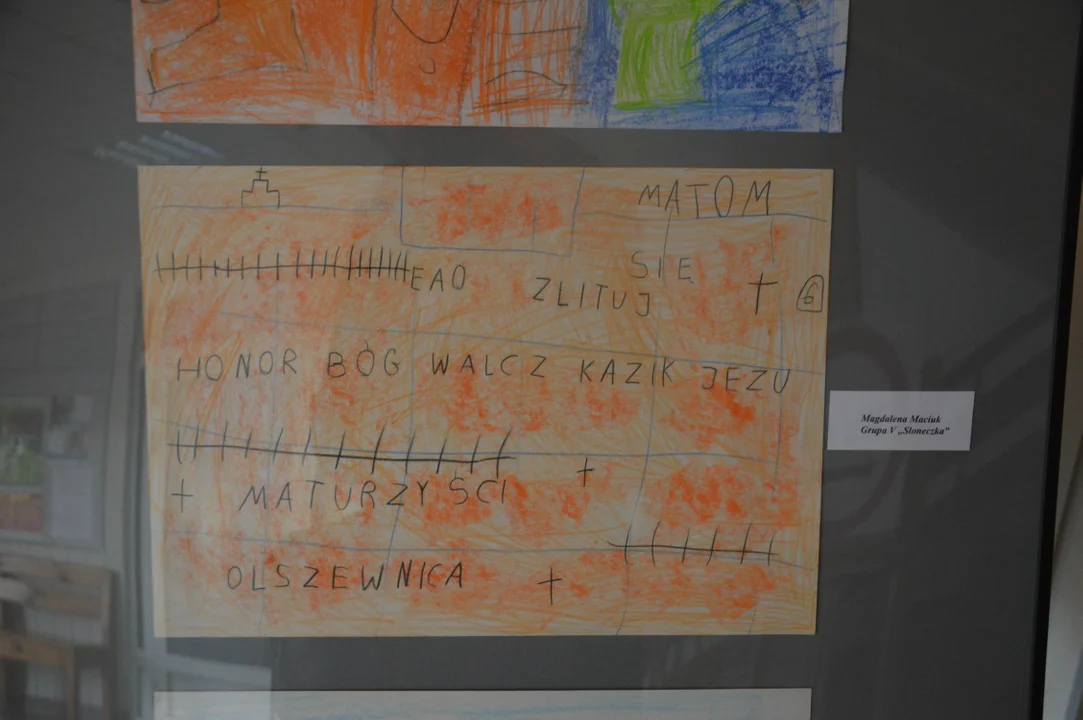 MATOM
SIĘ
EAO ZLITUJ 6
HONOR BÓG WALCZ KAZIK JEZU
MATURZYŚCI
OLSZEWNICA
Magdalena Maciuk
Grupa V „Słoneczka”